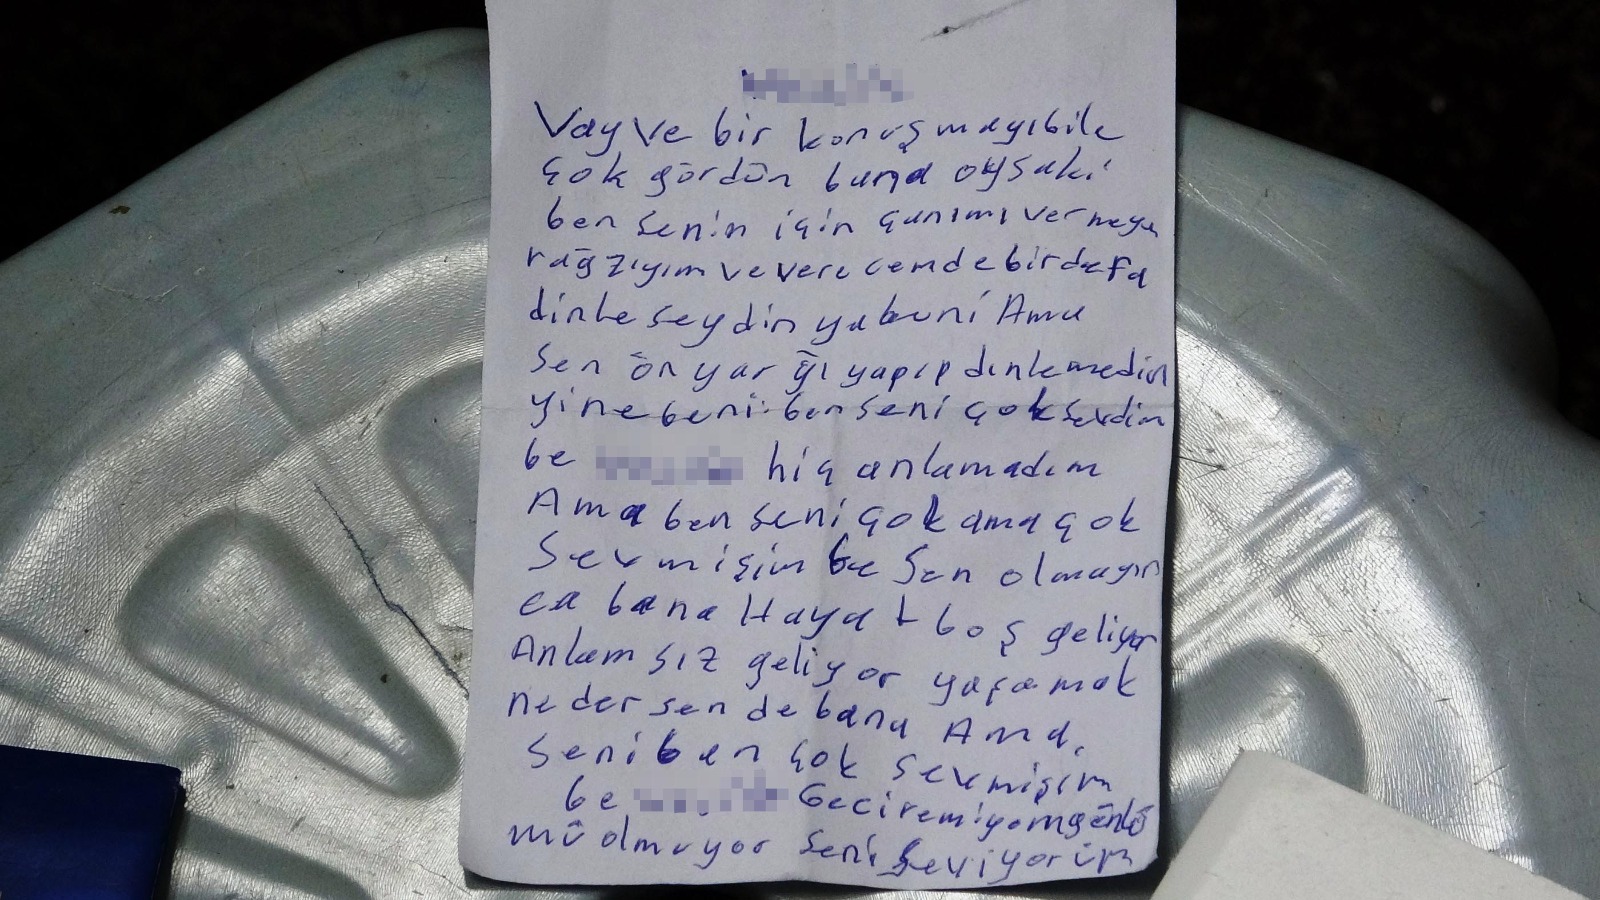 Vay ve bir konuşmayıbile
çok gördün bana oysaki
ben senin için çanımı vermeya
rağzıyım ve verecemde birdefa
dinleseydin ya beni Ama
Sen önyarğı yapıp dinlemedin
yine beni ben seni çok sevdim
be hiç anlamadım
Ama ben seni çok ama çok
Sevmişim be Sen olmayın
ca bana Hayat boş geliyor
Anlamsız geliyor yaşamak
ne dersen de bana Ama
Seni ben çok sevmişim
be Geciremiyom gönlü
mü olmuyor seni seviyorum